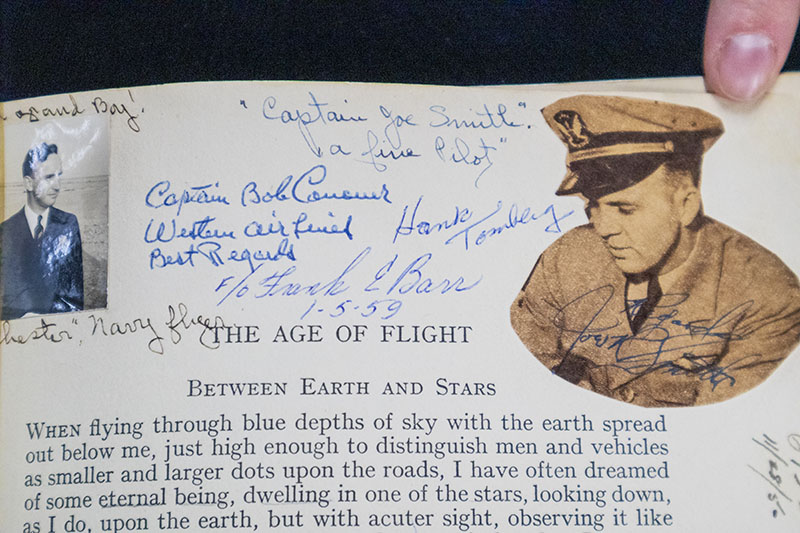 and Boy!
"Captain Joe Smith".
"a fine Pilot"
Captain Bob Conover
Western Air Lines
Best Regards
Hank Tomberg
F/O Frank E Barr
1-5-59
", Navy flyer
THE AGE OF FLIGHT
BETWEEN EARTH AND STARS
WHEN flying through blue depths of sky with the earth spread
out below me, just high enough to distinguish men and vehicles
as smaller and larger dots upon the roads, I have often dreamed
of some eternal being, dwelling in one of the stars, looking down,
as I do, upon the earth, but with acuter sight, observing it like